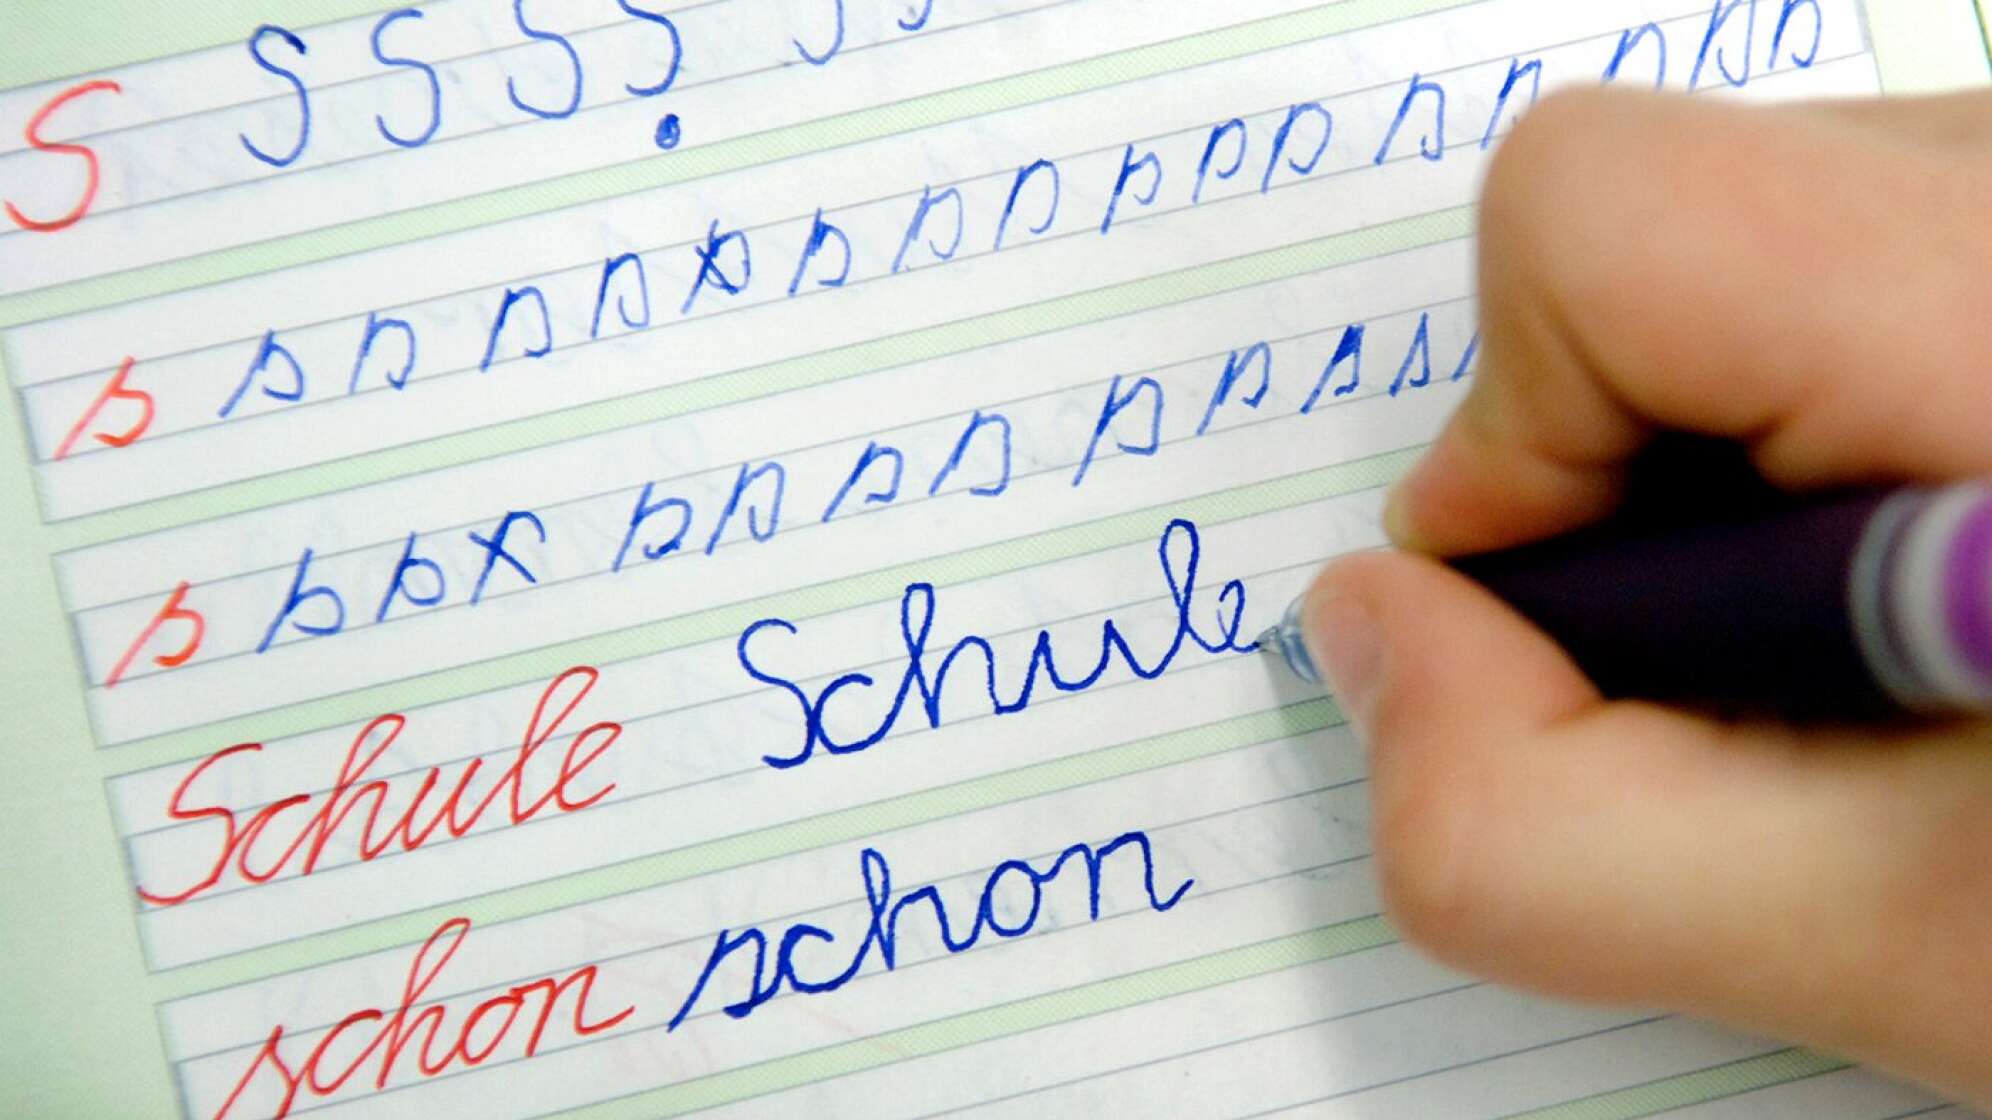 S S S S S S S
s s s s s s s s s s s s s s s s s
s s s s s s s s s s s s s
Schule Schule
schon schon